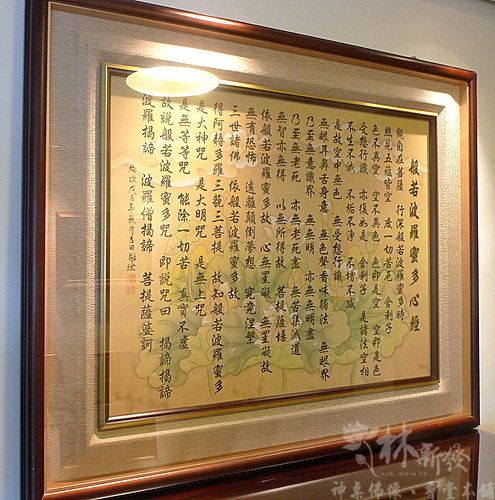 般若波羅蜜多心經
觀自在菩薩 行深般若波羅蜜多時
照見五蘊皆空 度一切苦厄 舍利子
色不異空 空不異色 色即是空 空即是色
受想行識 亦復如是 舍利子 是諸法空相
不生不滅 不垢不淨 不增不減
是故空中無色 無受想行識
無眼耳鼻舌身意 無色聲香味觸法 無眼界
乃至無意識界 無無明 亦無無明盡
乃至無老死 亦無老死盡 無苦集滅道
無智亦無得 以無所得故 菩提薩埵
依般若波羅蜜多故 心無罣礙 無罣礙故
無有恐怖 遠離顛倒夢想 究竟涅槃
三世諸佛 依般若波羅蜜多故
得阿耨多羅三藐三菩提 故知般若波羅蜜多
是大神咒 是大明咒 是無上咒
是無等等咒 能除一切苦 真實不虛
故說般若波羅蜜多咒 即說咒曰 揭諦揭諦
波羅揭諦 波羅僧揭諦 菩提薩婆訶
林新發